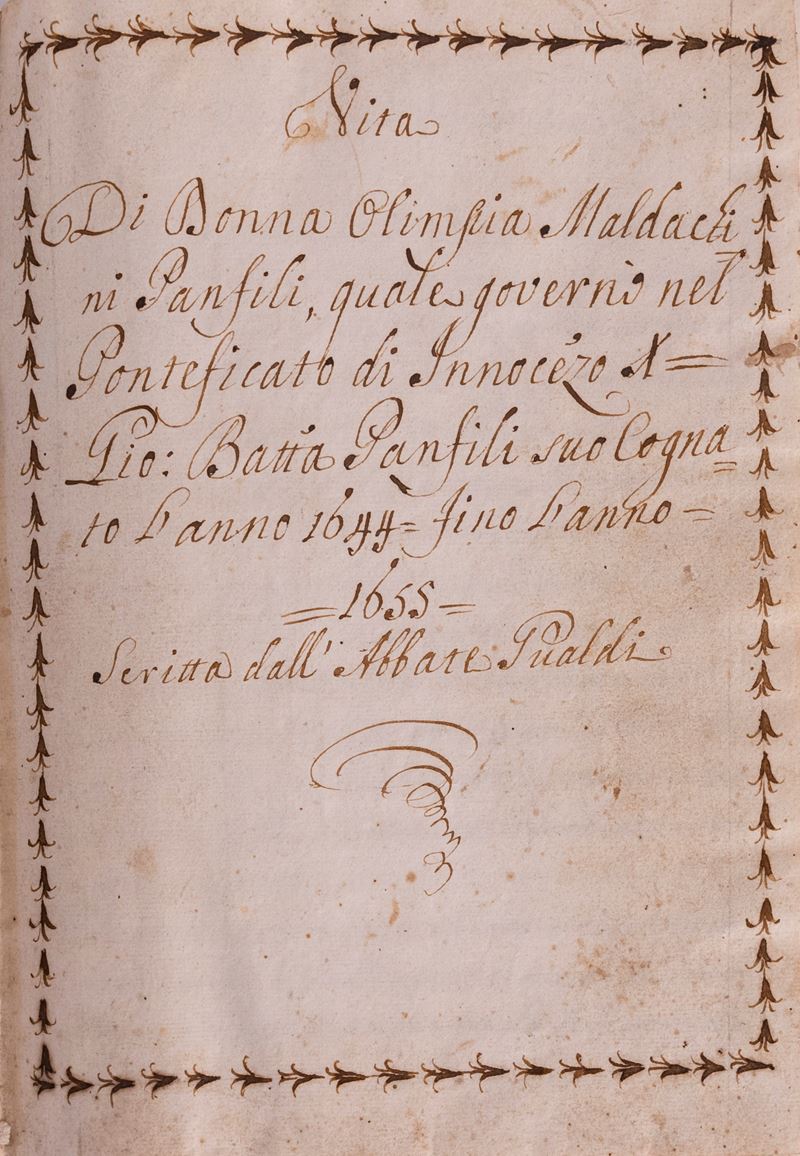 Vita
Di Donna Olimpia Maldachi
ni Panfili, quale governò nel
Ponteficato di Innocẽzo X=
Gio: Batta Panfili suo Cogna=
to L'anno 1644= fino L'anno=
=1655=
Scritta dall' Abbate Gualdi